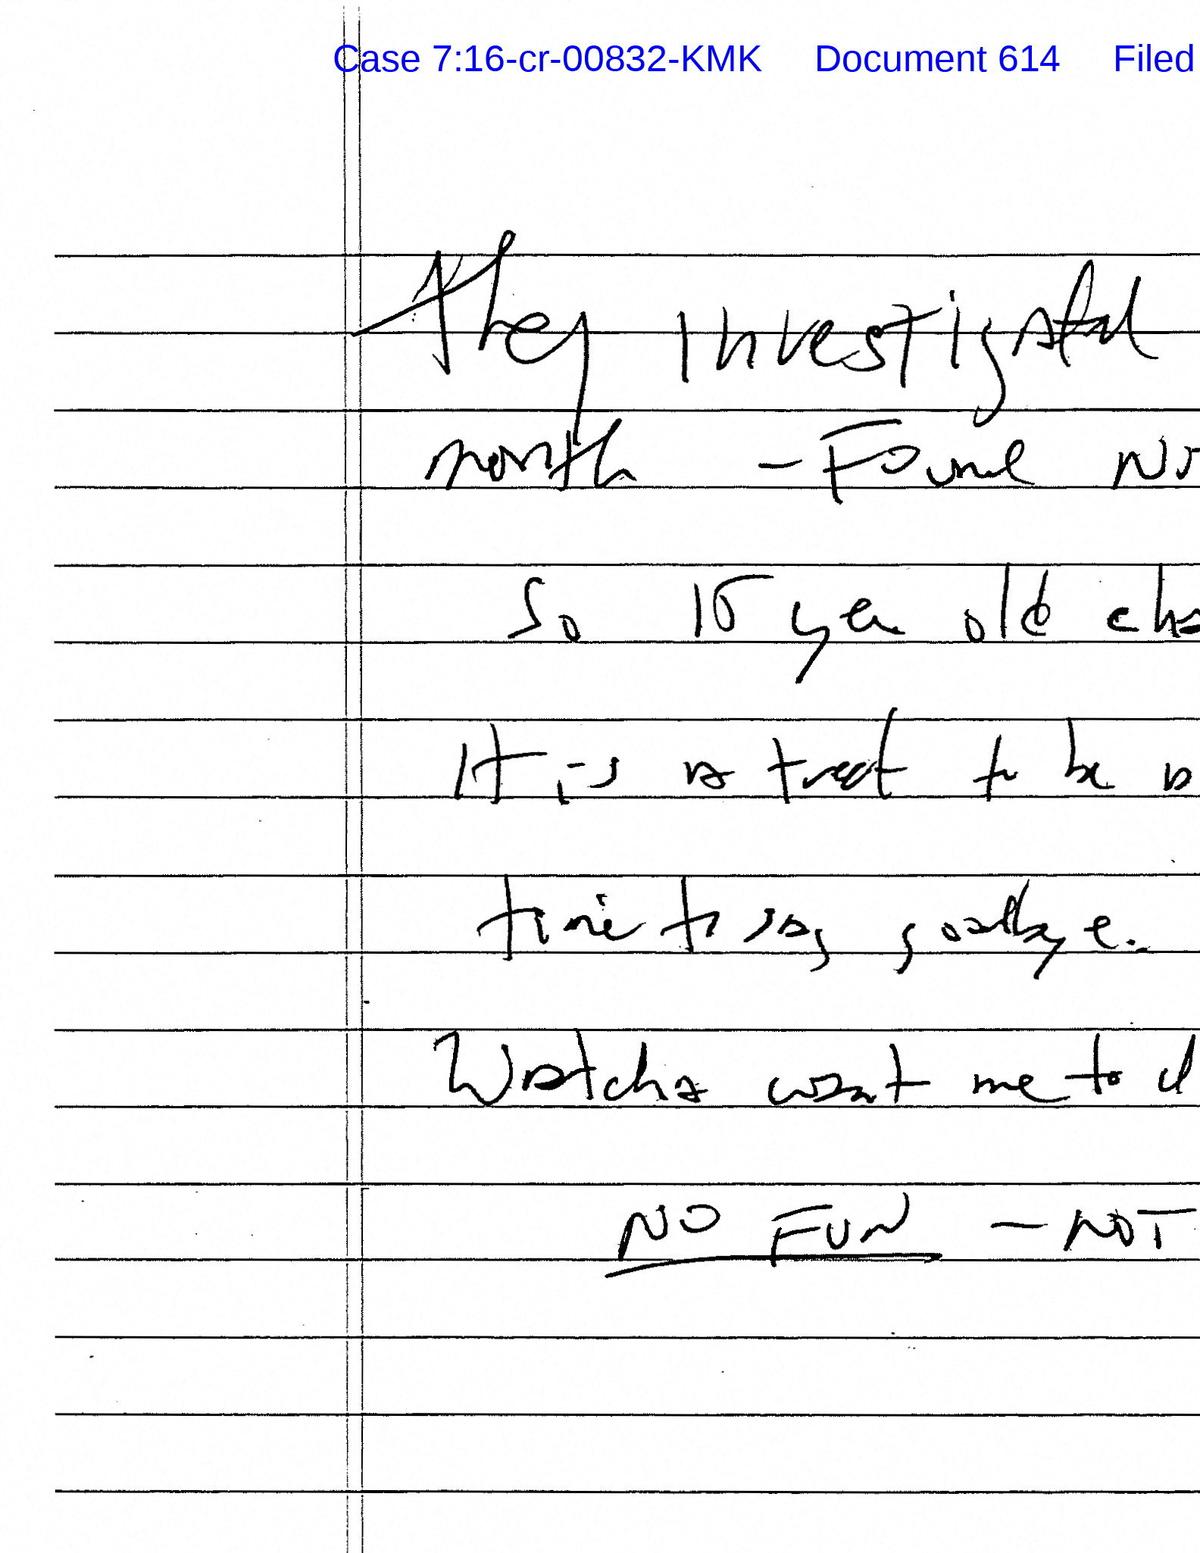 Case 7:16-cr-00832-KMK Document 614 Filed
They investigated
month - Found No
So 15 year old cha
It is a treat to be a
time to say goodbye.
Watcha want me to d
NO FUN - NOT